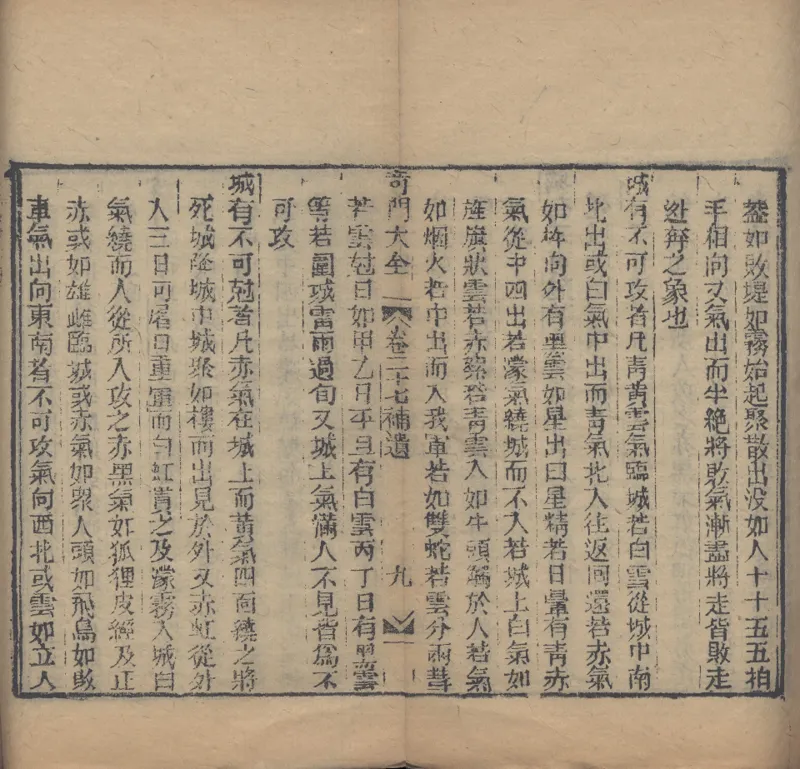 然如敗堤如霧始起聚散出没如人十十五五拍
手相向又氣出而半絶將敗氣漸盡將走皆敗走
迯奔之象也
城有不可攻者凡青黃雲氣臨城若白雲從城中南
北出或白氣中出而青氣北入往返回還若赤氣
如杵向外有黑雲如星出曰星精若日暈有青赤
氣從中四出若濛氣繞城而不入若城上白氣如
旌旗狀雲若赤 若青雲入如牛頭觸於人若氣
如烟火若中出而入我軍若如雙蛇若雲分兩彗
奇門大全 卷二十七補遺 九
若雲尅日如甲乙日平旦有白雲丙丁日有黑雲
等若圍城雷雨過旬又城上氣滿人不見皆爲不
可攻
城有不可尅者凡赤氣在城上而黃氣四面繞之將
死城降城中城聚如樓而出見於外又赤虹從外
入三日可屠日重暈而白虹貫之及濛霧入城白
氣繞而入從所入攻之亦黑氣如狐狸皮 及止
赤或如雄雌臨城或赤氣如衆人頭如飛鳥如敗
車氣出向東南者不可攻氣向西北或雲如立人